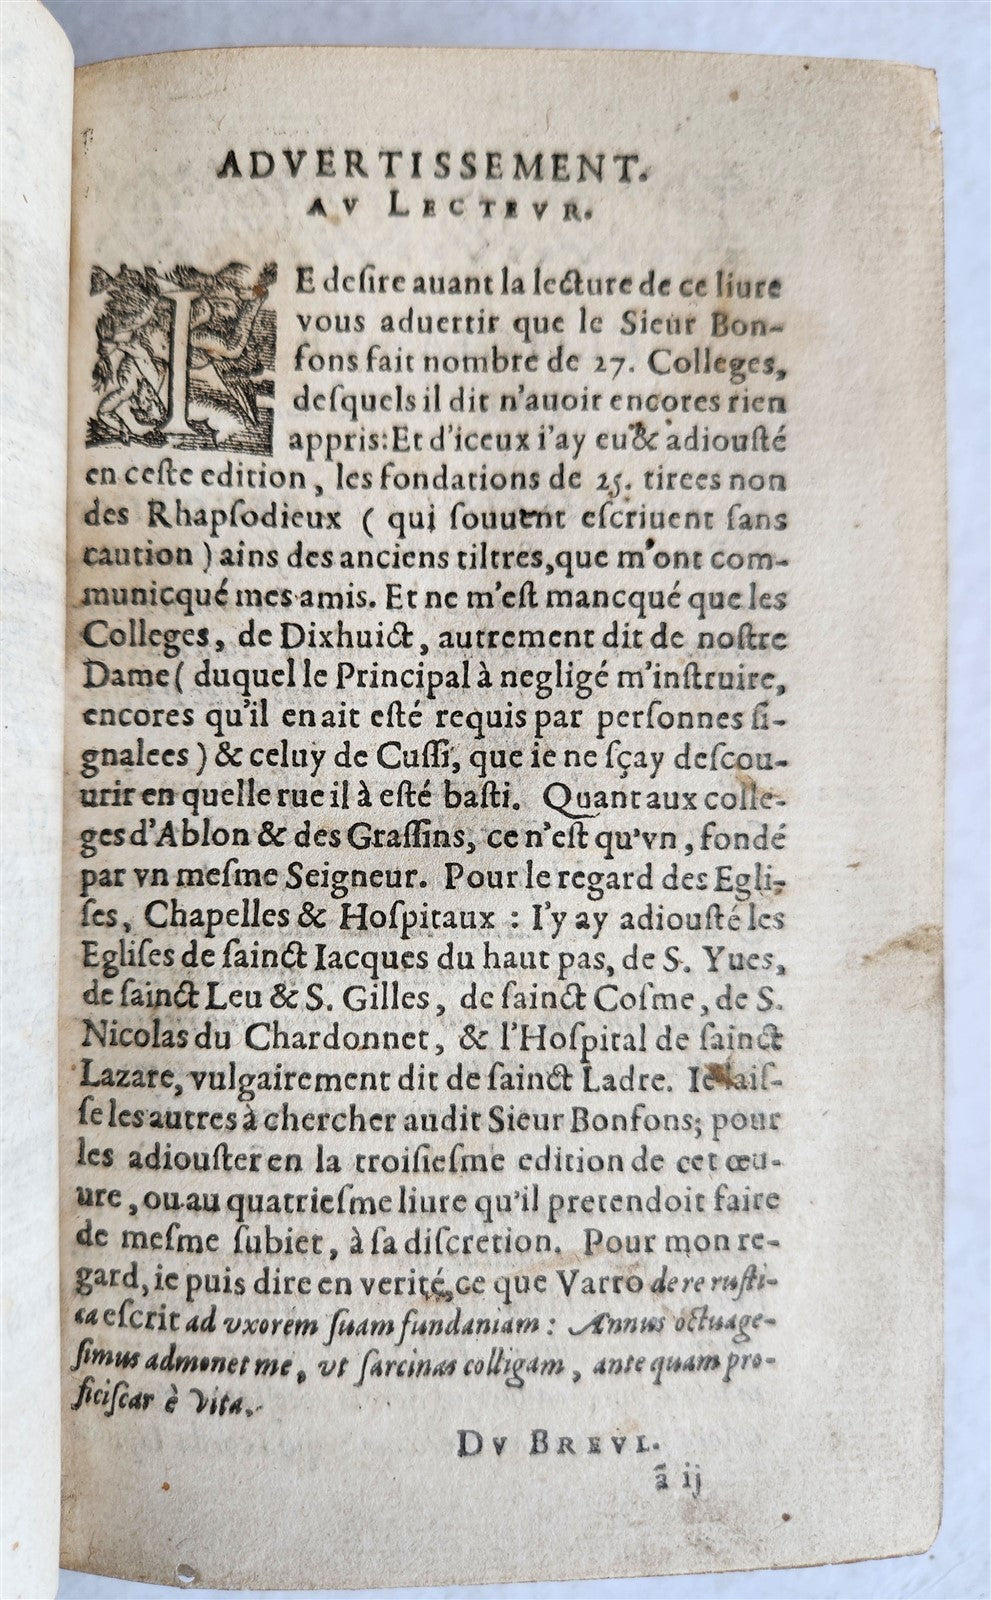 ADVERTISSEMENT.
AV LECTEVR.
IE deſire auant la lecture de ce liure
vous aduertir que le Sieur Bon-
fons fait nombre de 27. Colleges,
deſquels il dit n'auoir encores rien
appris: Et d'iceux i'ay eu & adiouſté
en ceſte edition, les fondations de 25. tirees non
des Rhapſodieux (qui ſouuent eſcriuent ſans
caution) ains des anciens tiltres, que m'ont com-
municqué mes amis. Et ne m'eſt mancqué que les
Colleges, de Dixhuict, autrement dit de noſtre
Dame (duquel le Principal à negligé m'inſtruire,
encores qu'il en ait eſté requis par perſonnes ſi-
gnalees) & celuy de Cuſſi, que ie ne ſçay deſcou-
urir en quelle rue il à eſté baſti. Quant aux colle-
ges d'Ablon & des Graſſins, ce n'eſt qu'vn, fondé
par vn meſme Seigneur. Pour le regard des Egli-
ſes, Chapelles & Hoſpitaux : I'y ay adiouſté les
Egliſes de ſainct Iacques du haut pas, de S. Yues,
de ſainct Leu & S. Gilles, de ſainct Coſme, de S.
Nicolas du Chardonnet, & l'Hoſpital de ſainct
Lazare, vulgairement dit de ſainct Ladre. Ie laiſ-
ſe les autres à chercher audit Sieur Bonfons; pour
les adiouſter en la troiſieſme edition de cet œu-
ure, ou au quatrieſme liure qu'il pretendoit faire
de meſme ſubiet, à ſa diſcretion. Pour mon re-
gard, ie puis dire en verité, ce que Varro de re ruſti-
ca eſcrit ad vxorem ſuam fundaniam : Annus octuage-
ſimus admonet me, vt ſarcinas colligam, ante quam pro-
ficiſcar è vita.
DV BREVL.
ã ij